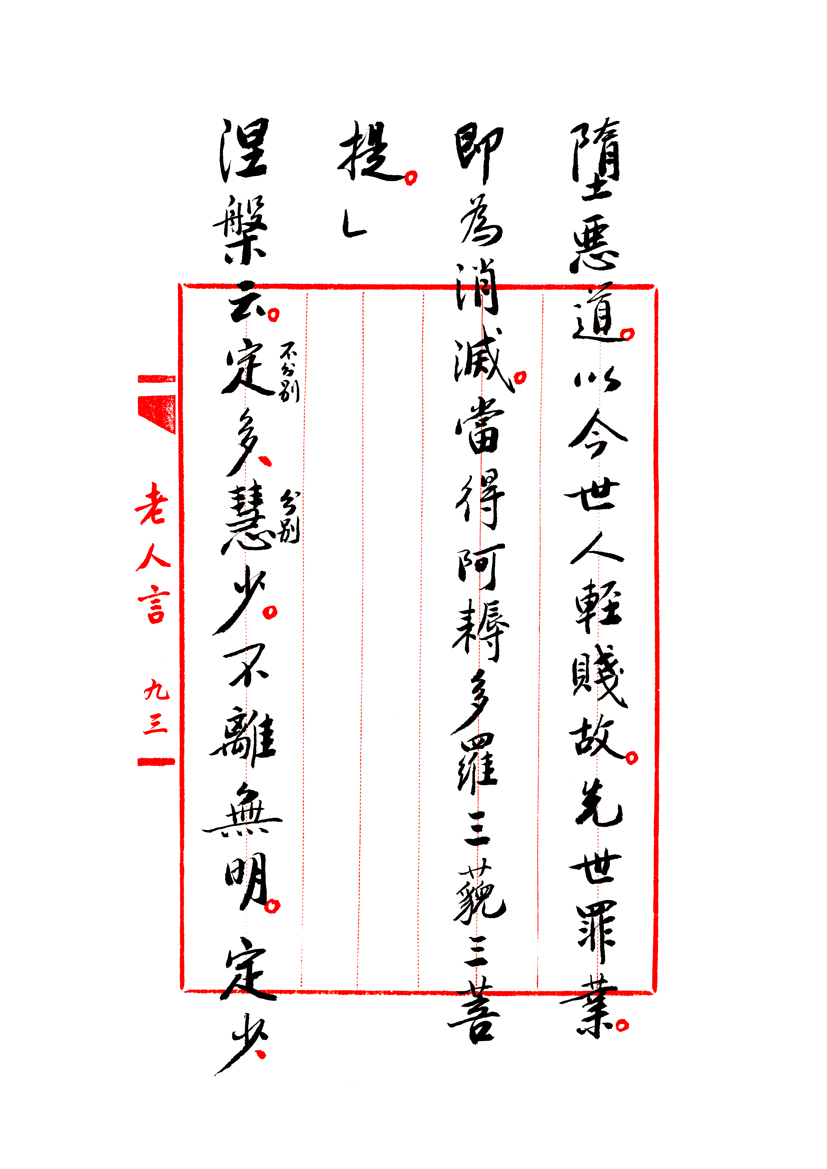 墮惡道。以今世人輕賤故。先世罪業。
即為消滅。當得阿耨多羅三藐三菩
提。」
涅槃云。定多、慧少。不離無明。定少、
不分別
分別
老人言 九三